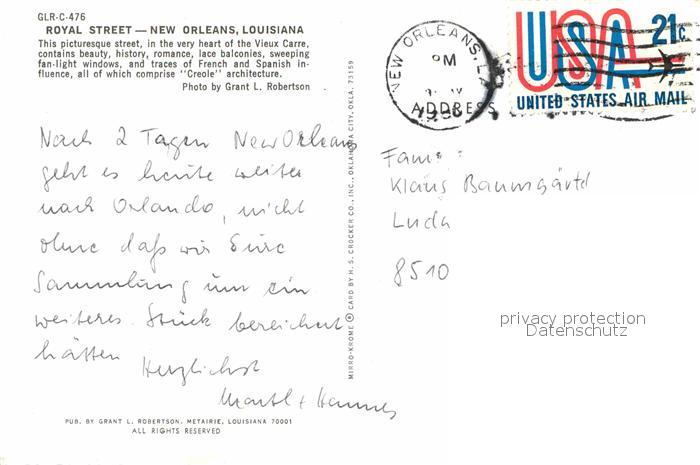 GLR-C-476
ROYAL STREET — NEW ORLEANS, LOUISIANA
This picturesque street, in the very heart of the Vieux Carre,
contains beauty, history, romance, lace balconies, sweeping
fan-light windows, and traces of French and Spanish in-
fluence, all of which comprise "Creole" architecture.
Photo by Grant L. Robertson
Nach 2 Tagen New Orleans
geht es heute weiter
nach Orlando, nicht
ohne daß wir Eure
Sammlung um ein
weiteres Stück bereichert
hätten
Herzlichst
+ Hannes
PUB. BY GRANT L. ROBERTSON, METAIRIE, LOUISIANA 70001
ALL RIGHTS RESERVED
MIRRO-KROME ® CARD BY H. S. CROCKER CO., INC., OKLAHOMA CITY, OKLA. 73159
NEW ORLEANS, LA
PM
ADDRESS
USA 21c
UNITED STATES AIR MAIL
Fam:
Klaus Baumgärtl
8510
privacy protection
Datenschutz